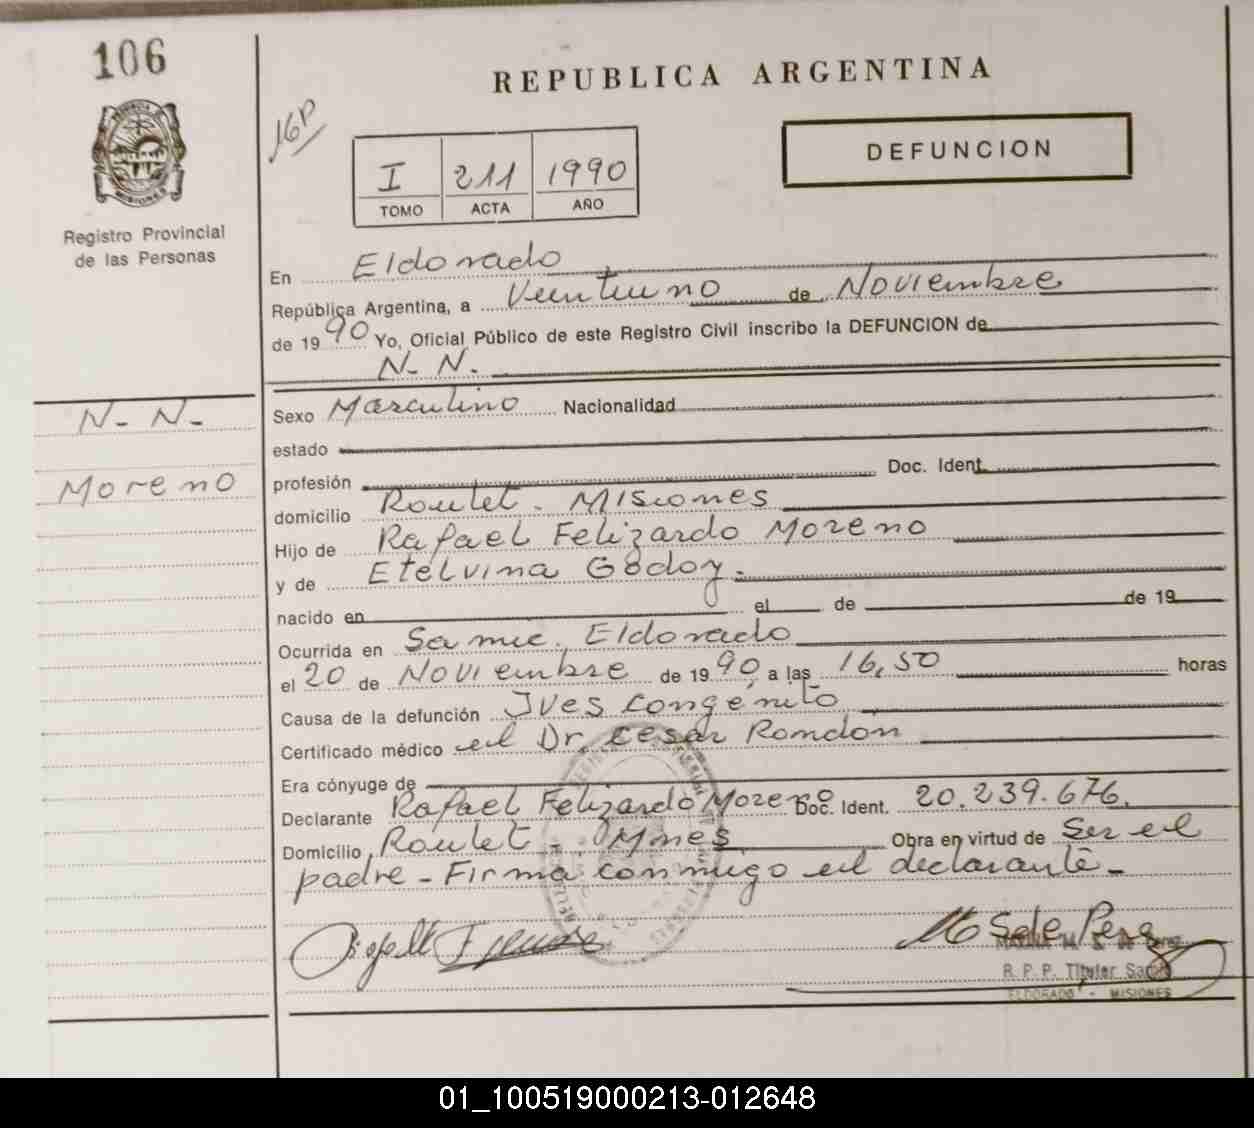 106
REPUBLICA ARGENTINA
16P
DEFUNCION
I 211 1990
TOMO ACTA AÑO
Registro Provincial
de las Personas
En Eldorado
República Argentina, a Veintiuno de Noviembre
de 1990 Yo, Oficial Público de este Registro Civil inscribo la DEFUNCION de
N. N.
N- N-
Moreno
Sexo Masculino Nacionalidad
estado
profesión Doc. Ident.
domicilio Roulet. Misiones
Hijo de Rafael Felizardo Moreno
y de Etelvina Godoy.
nacido en el de de 19
Ocurrida en Samic. Eldorado
el 20 de Noviembre de 1990, a las 16,50 horas
Causa de la defunción congénito
Certificado médico el Dr. Cesar Rondon
Era cónyuge de
Declarante Rafael Felizardo Moreno Doc. Ident. 20.239.676.
Domicilio Roulet - Mnes Obra en virtud de Ser el
padre - Firma conmigo el declarante -
R. P. P. Titular
ELDORADO - MISIONES
01_100519000213-012648